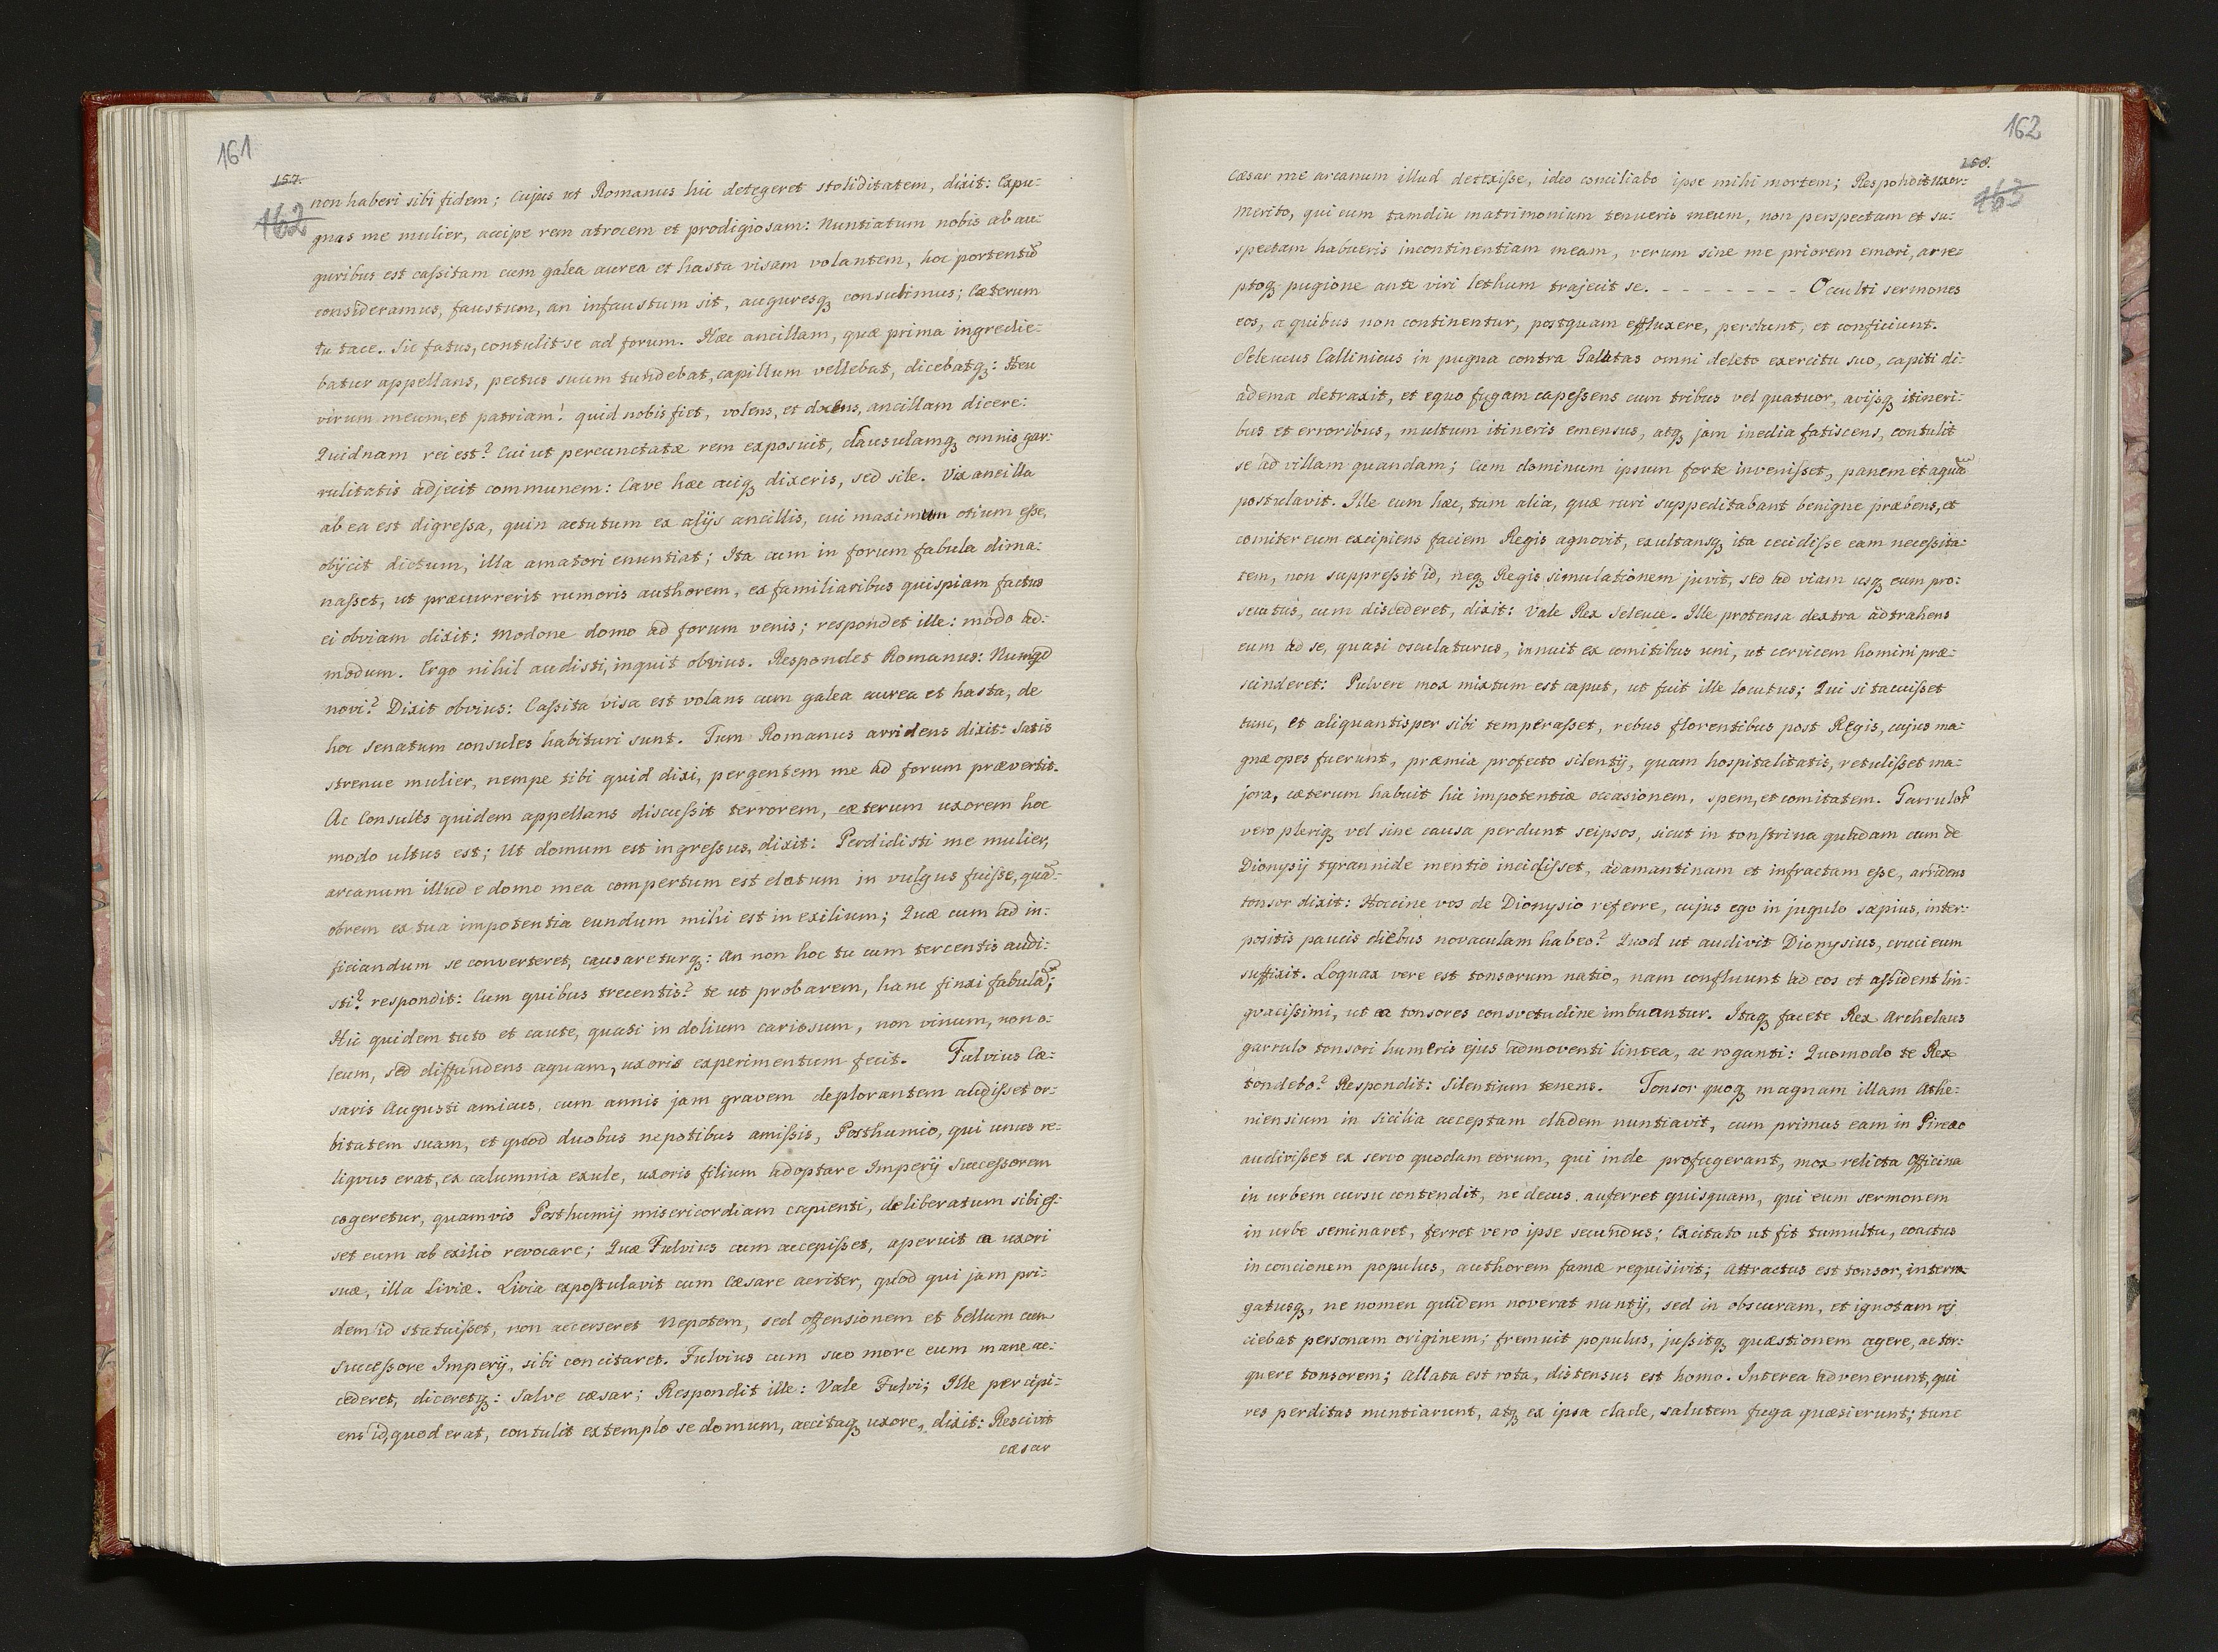 161
157.
162
non haberi sibi fidem; Cujus ut Romanus hic detegeret stoliditatem, dixit: Expu-
gnas me mulier, accipe rem atrocem et prodigiosam: Nuntiatum nobis ab au-
guribus est cassitam cum galea aurea et hasta visam volantem, hoc portentũ
consideramus, faustum, an infaustum sit, auguresq; consulimus; Cæterum
tu tace. Sic fatus, contulit se ad forum. Hæc ancillam, quæ prima ingredie-
batur appellans, pectus suum tundebat, capillum vellebat, dicebatq;: Heu
virum meum, et patriam! quid nobis fiet, volens, et docens, ancillam dicere:
Quidnam rei est? Cui ut percunctatæ rem exposuit, clausulamq; omnis gar-
rulitatis adjecit communem: Cave hæc cuiq; dixeris, sed sile. Vix ancilla
ab ea est digressa, quin actutum ex alijs ancillis, cui maximum otium esse,
objicit dictum, illa amatori enuntiat; Ita cum in forum fabula dima-
nasset, ut præcurrerit rumoris authorem, ex familiaribus quispiam factus
ei obviam dixit: Modone domo ad forum venis; respondet ille: modo ad-
modum. Ergo nihil audisti, inquit obvius. Respondet Romanus: Numqd
novi? Dixit obvius: Cassita visa est volans cum galea aurea et hasta, de
hoc senatum consules habituri sunt. Tum Romanus arridens dixit: Satis
strenue mulier, nempe tibi quid dixi, pergentem me ad forum prævertit.
Ac Consules quidem appellans discussit terrorem, cæterum uxorem hoc
modo ultus est; Ut domum est ingressus, dixit: Perdidisti me mulier,
arcanum illud e domo mea compertum est elatum in vulgus fuisse, quã-
obrem ex tua impotentia eundum mihi est in exilium; Quæ cum ad in-
ficiandum se converteret, causareturq;: An non hoc tu cum tercentis audi-
sti? respondit: Cum quibus trecentis? te ut probarem, hanc finxi fabulã;
Hic quidem tuto et caute, quasi in dolium cariosum, non vinum, non o-
leum, sed diffundens aquam, uxoris experimentum fecit. Fulvius Cæ-
saris Augusti amicus, cum annis jam gravem deplorantem audisset or-
bitatem suam, et quod duobus nepotibus amissis, Posthumio, qui unus re-
liqvus erat, ex calumnia exule, uxoris filium adoptare Imperij Successorem
cogeretur, quamvis Posthumij misericordiam capienti, deliberatum sibi es-
set eum ab exilio revocare; Quæ Fulvius cum accepisset, aperuit ea uxori
suæ, illa Liviæ. Livia expostulavit cum Cæsare acriter, quod qui jam pri-
dem id statuisset, non accerseret Nepotem, sed offensionem et bellum cum
Successore Imperij, sibi concitaret. Fulvius cum suo more eum mane ac-
cederet, diceretq;: Salve cæsar; Respondit ille: Vale Fulvi; Ille percipi-
ens id, quod erat, contulit extemplo se domum, accitaq; uxore, dixit: Rescivit
cæsar
162
158.
163
Cæsar me arcanum illud detexisse, ideo conciliabo ipse mihi mortem; Respondit uxor:
Merito, qui cum tamdiu matrimonium tenueris meum, non perspectam et su-
spectam habueris incontinentiam meam, verum sine me priorem emori, arre-
ptoq; pugione ante viri lethum trajecit se. - - - - - - - - Occulti sermones
eos, a quibus non continentur, postquam effluxere, perdunt, et conficiunt.
Seleucus Callinicus in pugna contra Galatas omni deleto exercitu suo, capiti di-
adema detraxit, et equo fugam capessens cum tribus vel quatuor, avijsq; itineri-
bus et erroribus, multum itineris emensus, atq; jam inedia fatiscens, contulit
se ad villam quandam; Cum dominum ipsum forte invenisset, panem et aquã
postulavit. Ille cum hæc, tum alia, quæ ruri suppeditabant benigne præbens, et
comiter eum excipiens faciem Regis agnovit, exultansq; ita cecidisse eam necessita-
tem, non suppressit id, neq; Regis simulationem juvit, sed ad viam usq; eum pro-
secutus, cum discederet, dixit: Vale Rex Seleuce. Ille protensa dextra adtrahens
eum ad se, quasi osculaturus, innuit ex comitibus uni, ut cervicem homini præ-
scinderet: Pulvere mox mixtum est caput, ut fuit ille locutus; Qui si tacuisset
tunc, et aliquantisper sibi temperasset, rebus florentibus post Regis, cujus ma-
gnæ opes fuerunt, præmia profecto silentij, quam hospitalitatis, retulisset ma-
jora, cæterum habuit hic impotentiæ occasionem, spem, et comitatem. Garruloꝝ
vero pleriq; vel sine causa perdunt seipsos, sicut in tonstrina quadam cum de
Dionysij tyrannide mentio incidisset, adamantinam et infractam esse, arridens
tonsor dixit: Hoccine vos de Dionysio referre, cujus ego in jugulo sæpius, inter-
positis paucis diebus novaculam habeo? Quod ut audivit Dionysius, cruci eum
suffixit. Loquax vere est tonsorum natio, nam confluunt ad eos et assident lin-
gvacissimi, ut ea tonsores consvetudine imbuantur. Itaq; facete Rex Archelaus
garrulo tonsori humeris ejus admoventi lintea, ac roganti: Quomodo te Rex
tondebo? Respondit: Silentium tenens. Tonsor quoq; magnam illam Athe-
niensium in Sicilia acceptam cladem nuntiavit, cum primus eam in Pireæo
audivisset ex servo quodam eorum, qui inde profugerant, mox relicta officina
in urbem cursu contendit, ne decus auferret quisquam, qui eum sermonem
in urbe seminaret, ferret vero ipse secundus; Excitato ut fit tumultu, coactus
in concionem populus, authorem famæ requisivit; Attractus est tonsor, interro-
gatusq;, ne nomen quidem noverat nuntij, sed in obscuram, et ignotam rej
ciebat personam originem; fremuit populus, jussitq; quæstionem agere, ac tor-
quere tonsorem; Allata est rota, distensus est homo. Interea advenerunt, qui
res perditas nuntiarunt, atq; ex ipsa clade, salutem fuga quæsierunt; tunc